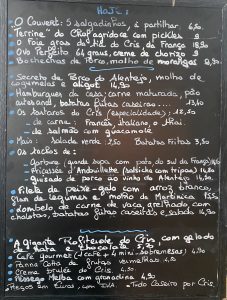 HOJE:
O Couvert: 5 salgadinhos, a partilhar 6,50
"Terrine" do Chef agridoce com pickles 9
O Foie gras do tio do Cris da França 18,50
Ovo Perfeito 64 graus, creme de chorizo 9
Bochechas de Porco, molho de morangos 8,50
Secreto de Porco do Alentejo, molho de
cogumelos e alioli 14,90
Hambúrguer da casa: carne maturada, pão
artesanal, batatas fritas caseiras 13,60
Os Tartaros do Cris (especialidade): 13,50
- de carne: Francês, Italiano, Thai
- de salmão com guacamole
Mais: Salada verde 2,50 Batatas Fritas 3,50
Os tachos de:
Garbure (grande sopa com pato do sul da França)
Piçasses d'Andouillette (salsicha com tripas) 14,50
Guisado de porco ao vinho do Alentejo 14,50
com arroz branco,
flan de legumes e molho da Martinica 15,50
Rombo de carne de vaca açoreada, com
chalotas, batatas fritas caseiras e salada 14,90
A Gigante Profiterole do Cris, com gelado
de Nata e Chocolate
Café gourmet (1 café + 4 mini-sobremesas) 4,90
Panna Cotta de frutas vermelhas 4,50
Creme brulée do Cris 4,50
Pêssego Melba com granadina 4,90
Preços em Euros, com IVA Tudo Caseiro por Cris